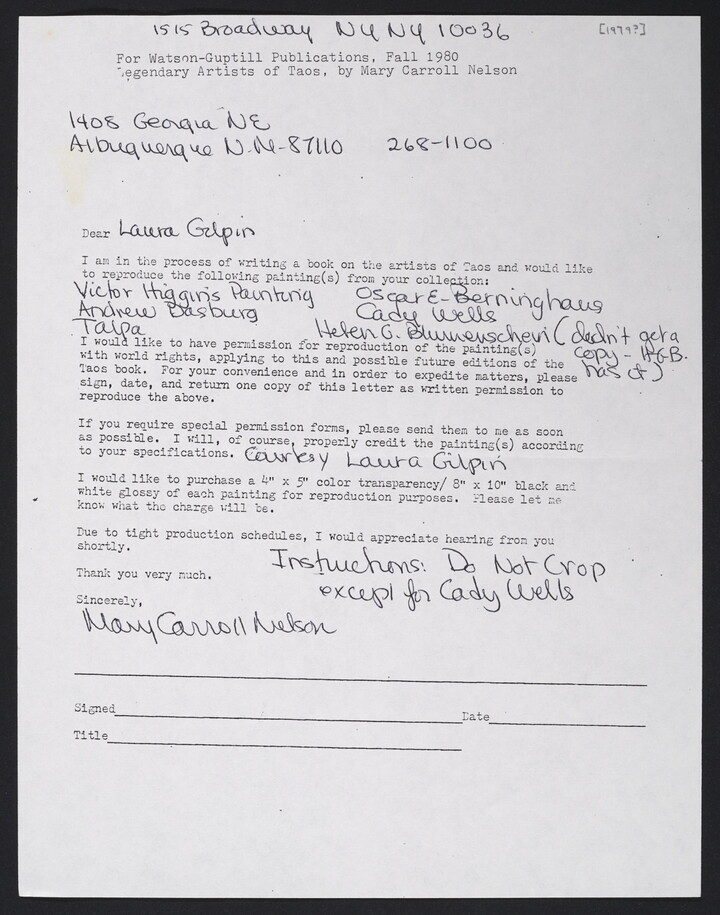 1515 Broadway NY NY 10036
[1979?]
For Watson-Guptill Publications, Fall 1980
Legendary Artists of Taos, by Mary Carroll Nelson
1408 Georgia NE
Albuquerque N.M-87110 268-1100
Dear Laura Gilpin
I am in the process of writing a book on the artists of Taos and would like
to reproduce the following painting(s) from your collection:
Victor Higgins Painting Oscar E. Berninghaus
Andrew Dasburg Cady Wells
Talpa Helen G. Blumenschein (didn't get a
copy - H.G.B.
has it)
I would like to have permission for reproduction of the painting(s)
with world rights, applying to this and possible future editions of the
Taos book. For your convenience and in order to expedite matters, please
sign, date, and return one copy of this letter as written permission to
reproduce the above.
If you require special permission forms, please send them to me as soon
as possible. I will, of course, properly credit the painting(s) according
to your specifications. Courtesy Laura Gilpin
I would like to purchase a 4" x 5" color transparency/ 8" x 10" black and
white glossy of each painting for reproduction purposes. Please let me
know what the charge will be.
Due to tight production schedules, I would appreciate hearing from you
shortly.
Instructions: Do Not Crop
except for Cady Wells
Thank you very much.
Sincerely,
Mary Carroll Nelson
Signed Date
Title